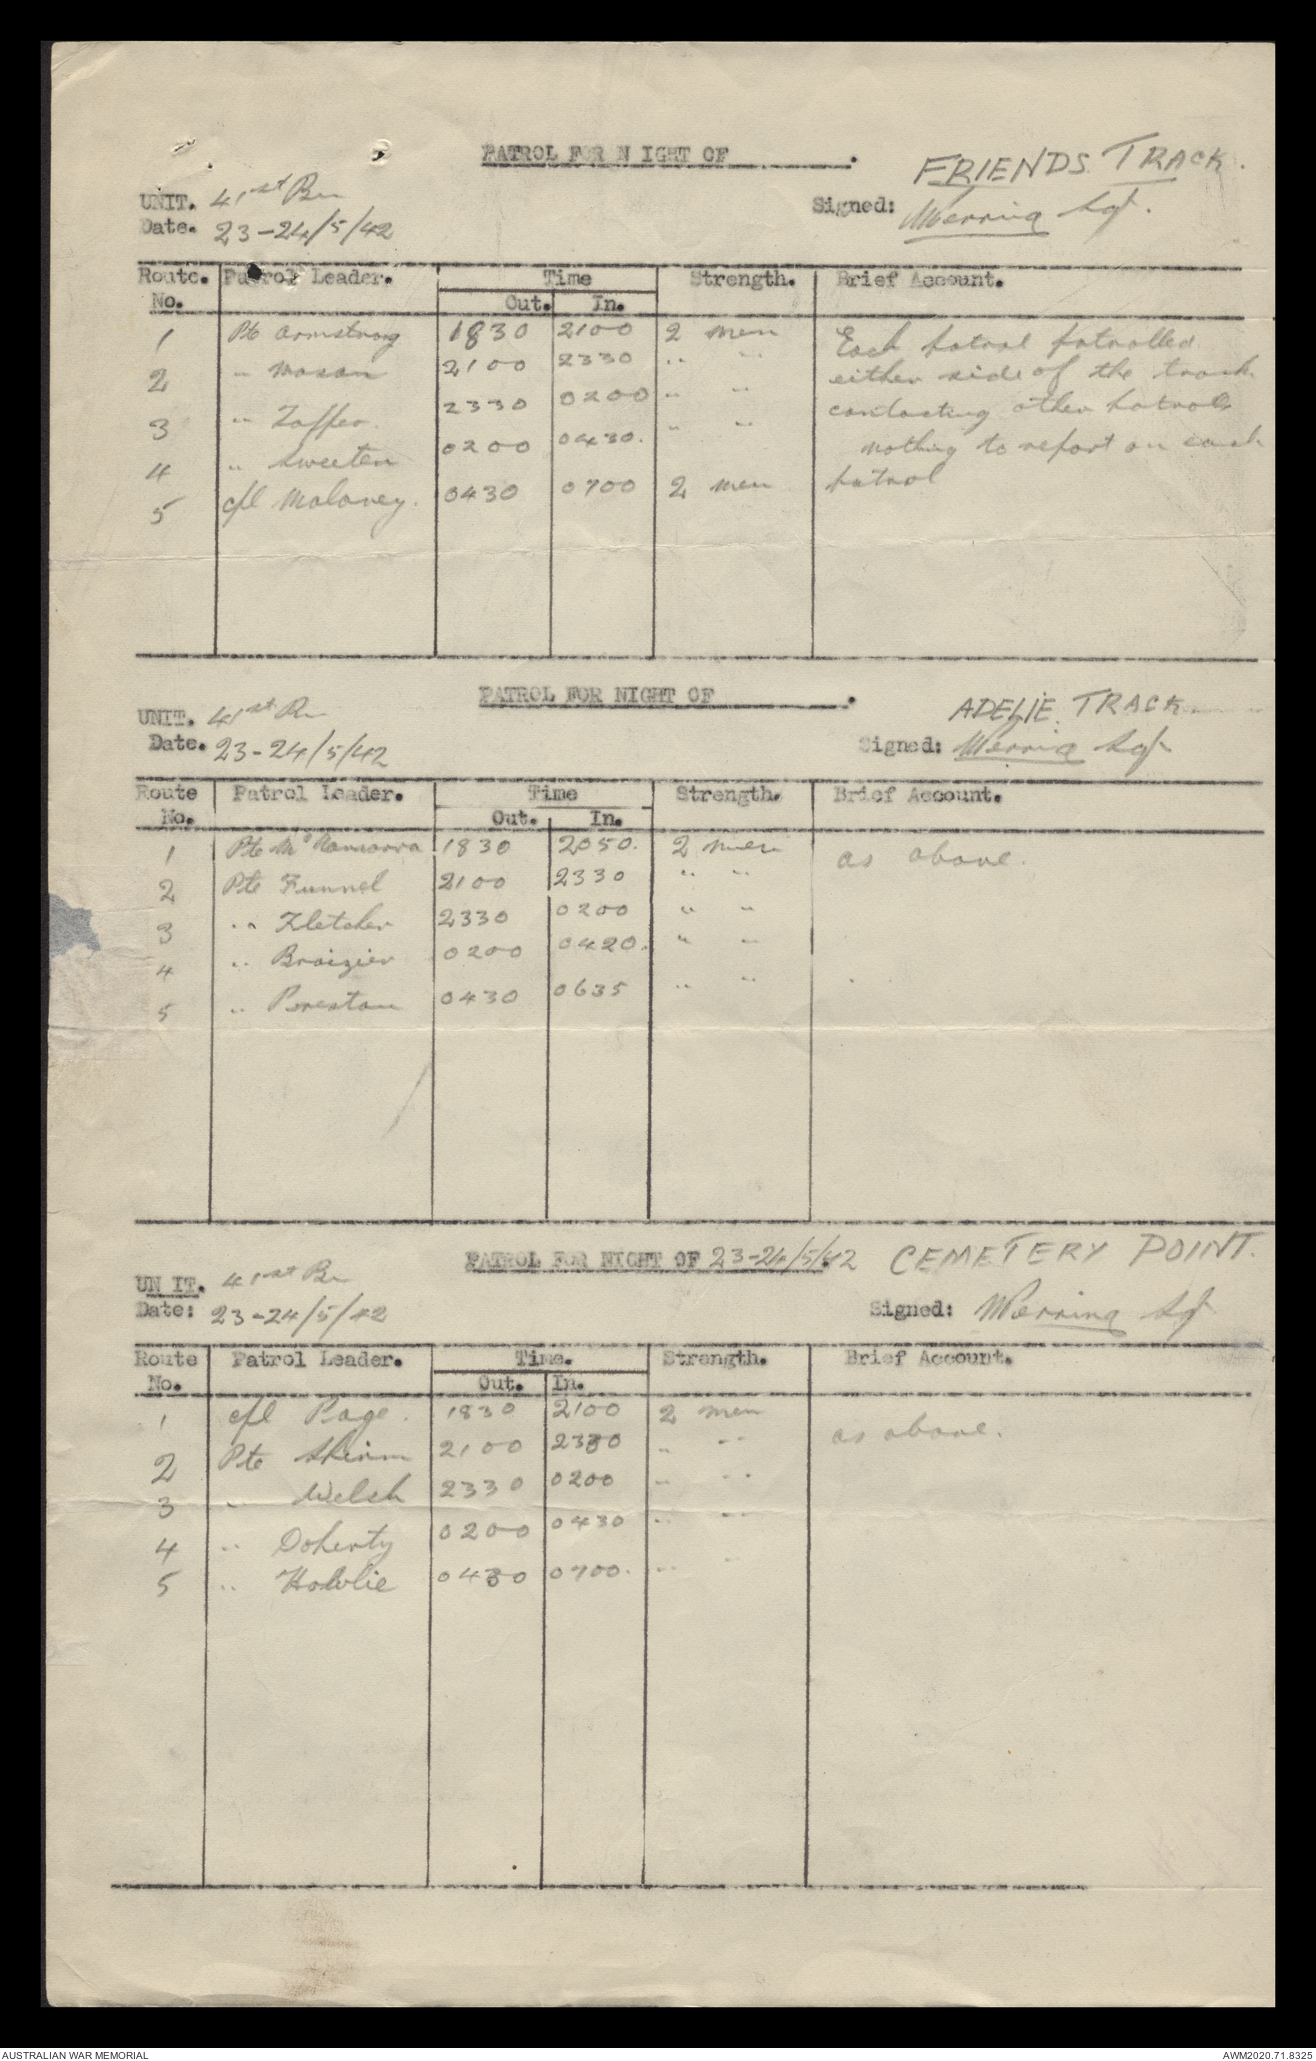 PATROL FOR N IGHT OF .
FRIENDS TRACK.
UNIT. 41st Bn
Signed: Werring Sgt.
Date. 23-24/5/42
Route. Patrol Leader. Time Strength. Brief Account.
No. Out. In.
1 Pte Armstrong 1830 2100 2 men Each patrol patrolled
2 " Mason 2100 2330 " " either side of the track
3 " 2330 0200 " " contacting other patrols
4 " Sweeten 0200 0430. " " nothing to report on each
5 Cpl Maloney. 0430 0700 2 men patrol
PATROL FOR NIGHT OF .
ADELIE TRACK.
UNIT. 41st Bn
Date. 23-24/5/42 Signed: Sgt
Route Patrol Leader. Time Strength. Brief Account.
No. Out. In.
1 Pte 1830 2050. 2 men as above.
2 Pte Funnel 2100 2330 " "
3 " Fletcher 2330 0200 " "
4 " Braizier 0200 0420. " "
5 " Preston 0430 0635 " "
PATROL FOR NIGHT OF 23-24/5/42 CEMETERY POINT.
UN IT. 41st Bn
Date: 23-24/5/42 Signed: Werring Sgt
Route Patrol Leader. Time. Strength. Brief Account.
No. Out. In.
1 Cpl Page. 1830 2100 2 men as above.
2 Pte 2100 2330 " "
3 " Welsh 2330 0200 " "
4 " Doherty 0200 0430 " "
5 " 0430 0700. " "
AUSTRALIAN WAR MEMORIAL
AWM2020.71.8325